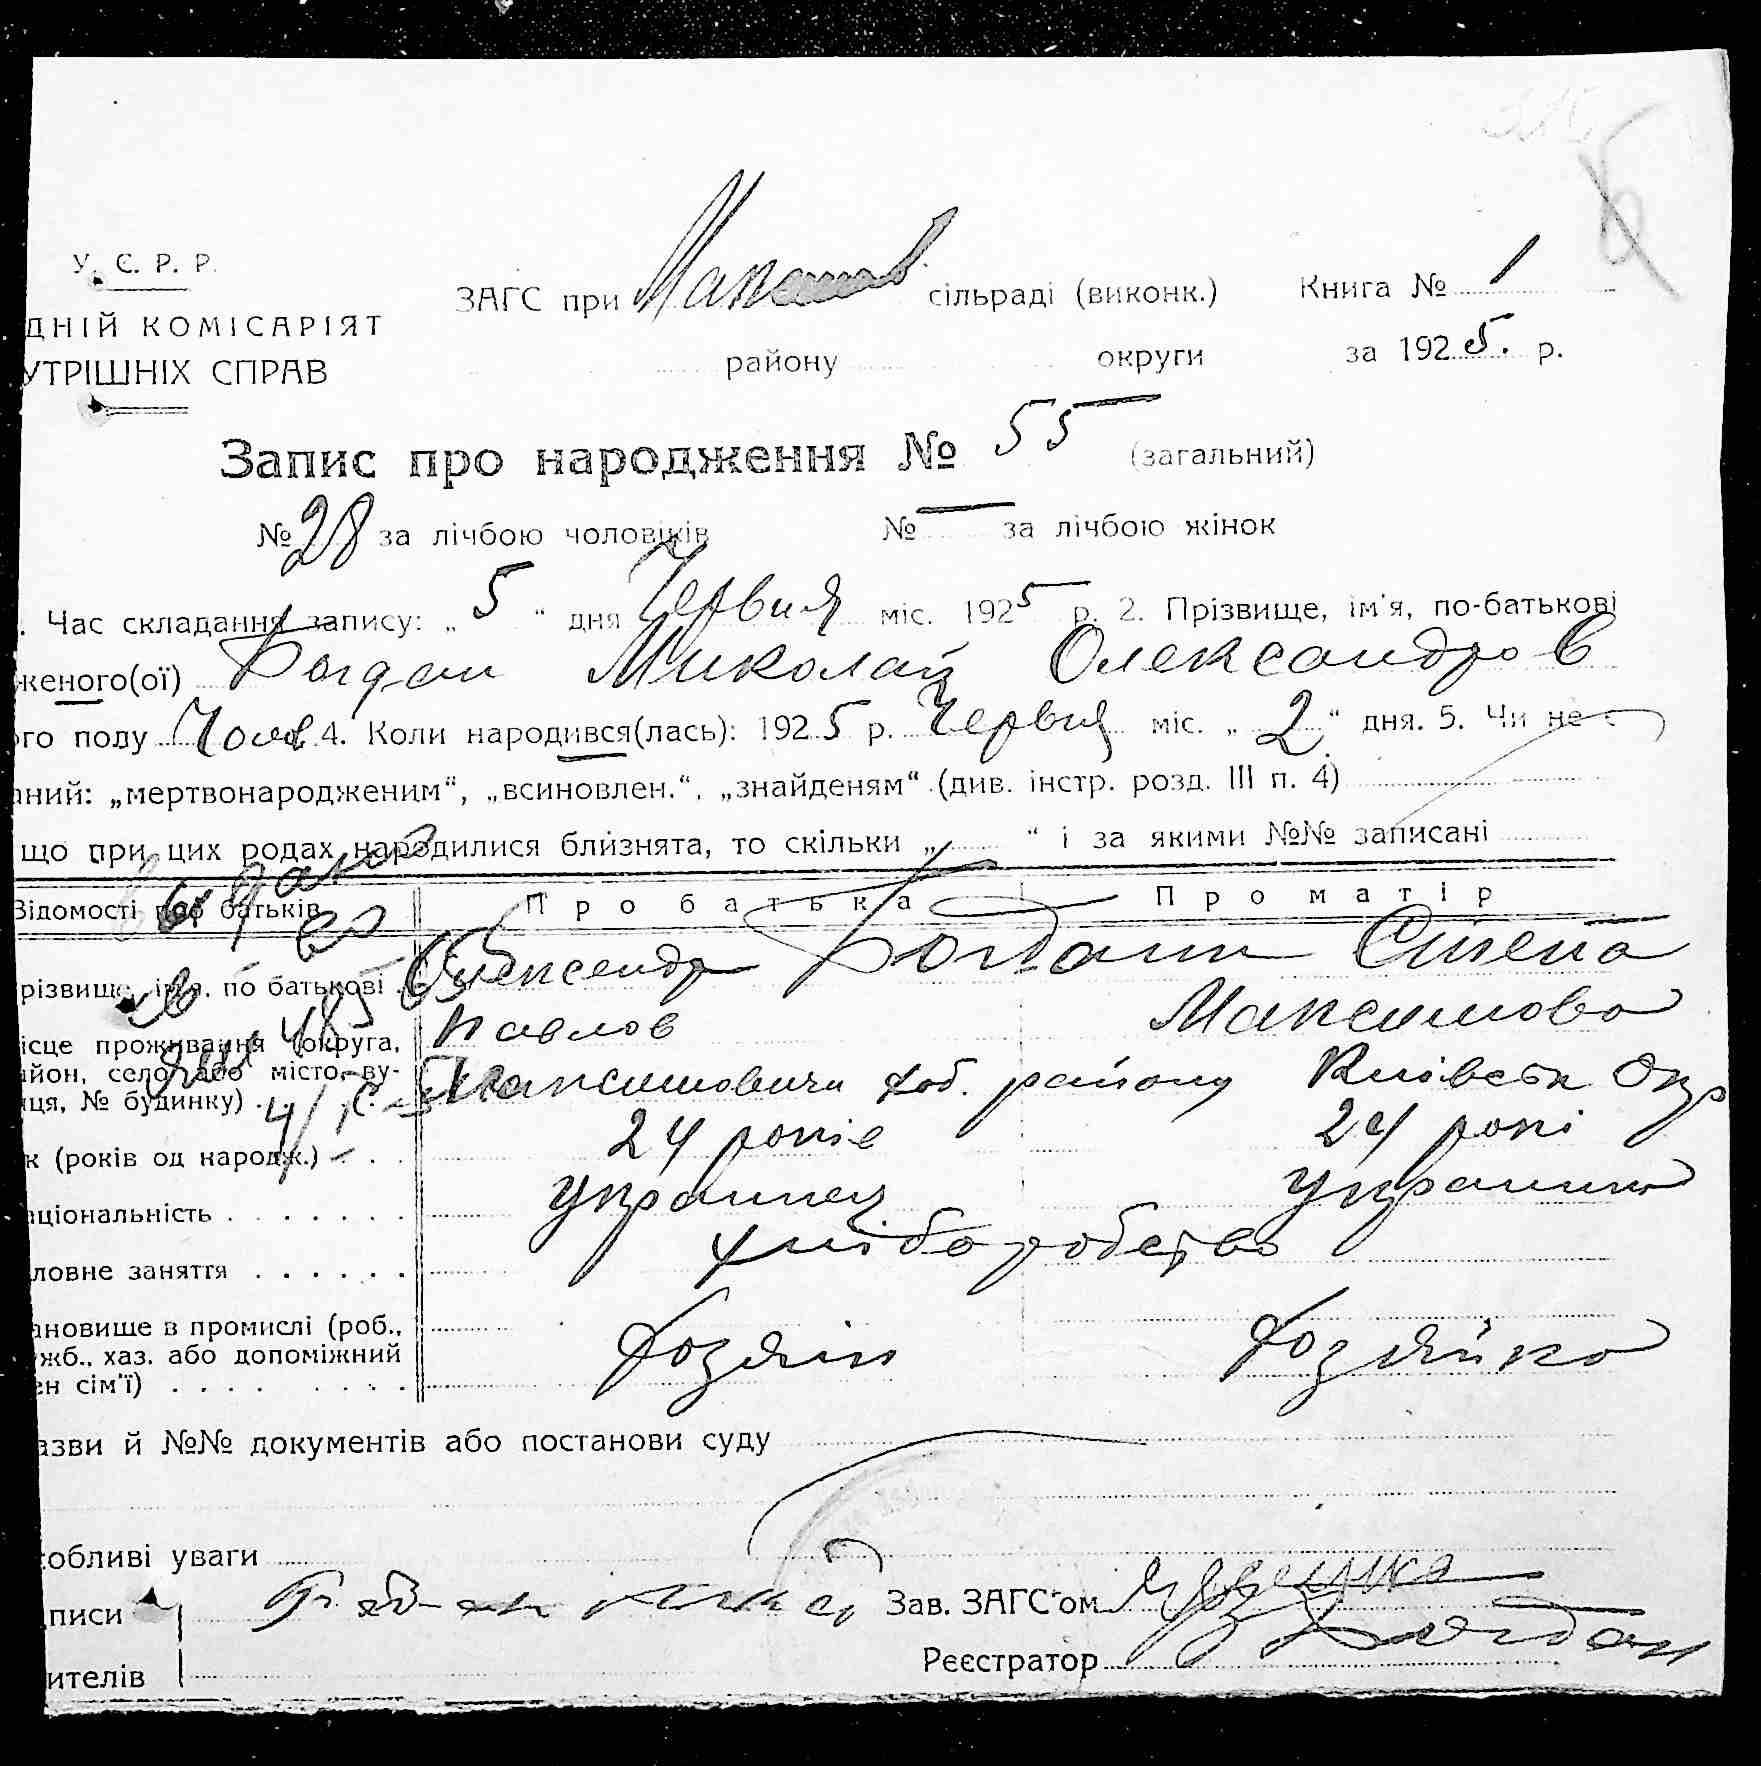 У. С. Р. Р.
ЗАГС при Максим сільраді (виконк.) Книга № 1
ДНІЙ КОМІСАРІЯТ
УТРІШНІХ СПРАВ
району округи за 1925. р.
Запис про народження № 55 (загальний)
№ 28 за лічбою чоловіків № — за лічбою жінок
. Час складання запису: „ 5 “ дня Червня міс. 1925 р. 2. Прізвище, ім'я, по-батькові
женого(ої) Богдан Миколай Олександров
ого полу Чолов. 4. Коли народився(лась): 1925 р. Червня міс. „ 2 “ дня. 5. Чи не є
аний: „мертвонародженим“, „всиновлен.“, „знайденям“ (див. інстр. розд. III п. 4)
що при цих родах народилися близнята, то скільки „ “ і за якими №№ записані
Відомості про батьків Про батька Про матір
різвище, ім'я, по батькові Олександр Богдан Степа
Павлов Максимова
ісце проживання (округа,
айон, село або місто, ву-
ця, № будинку) Максимовичи Хаб. району Київськ Окр
к (років од народж.) 24 років 24 рокі
аціональність українец українка
ловне заняття хліборобство
ановище в промислі (роб.,
жб., хаз. або допоміжний
ен сім'ї) Хозяін Хозяйка
азви й №№ документів або постанови суду
собливі уваги
писи Зав. ЗАГС'ом
ителів Реєстратор Богдан